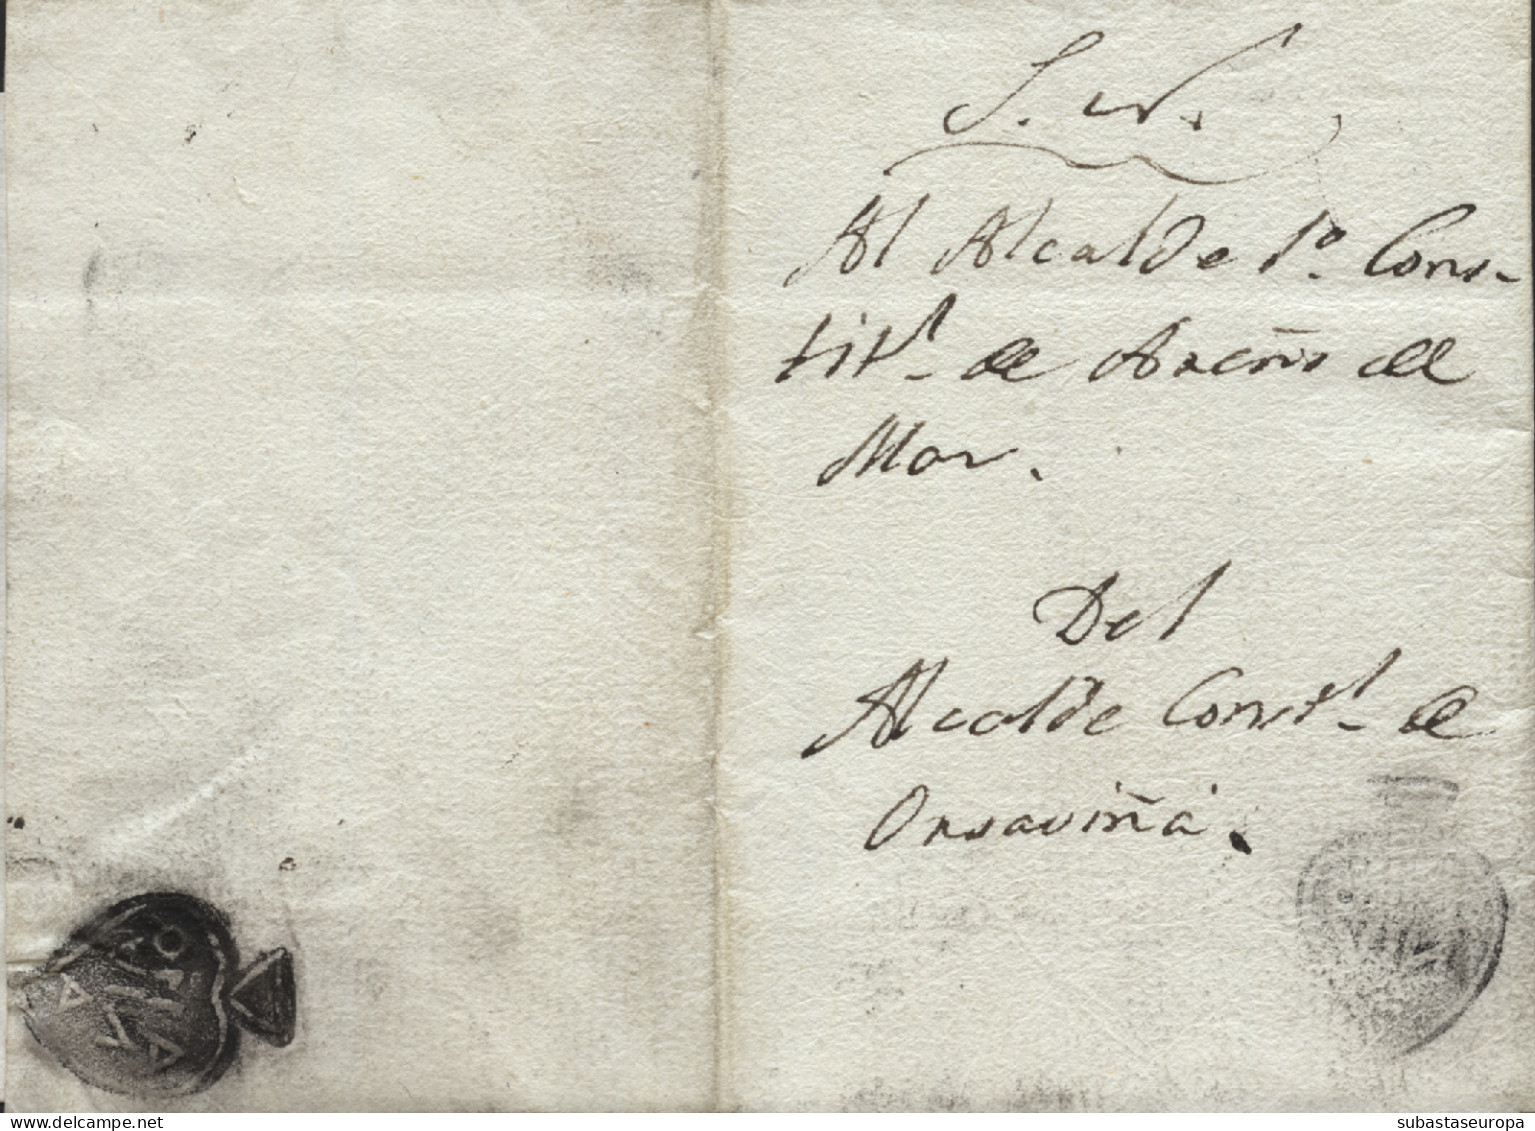 S. N.
Al Alcalde 1º Cons-
titl. de Areñs del
Mar.
Del
Alcalde Constl. de
Orsaviñá.
delcampe.net
subastaseuropa